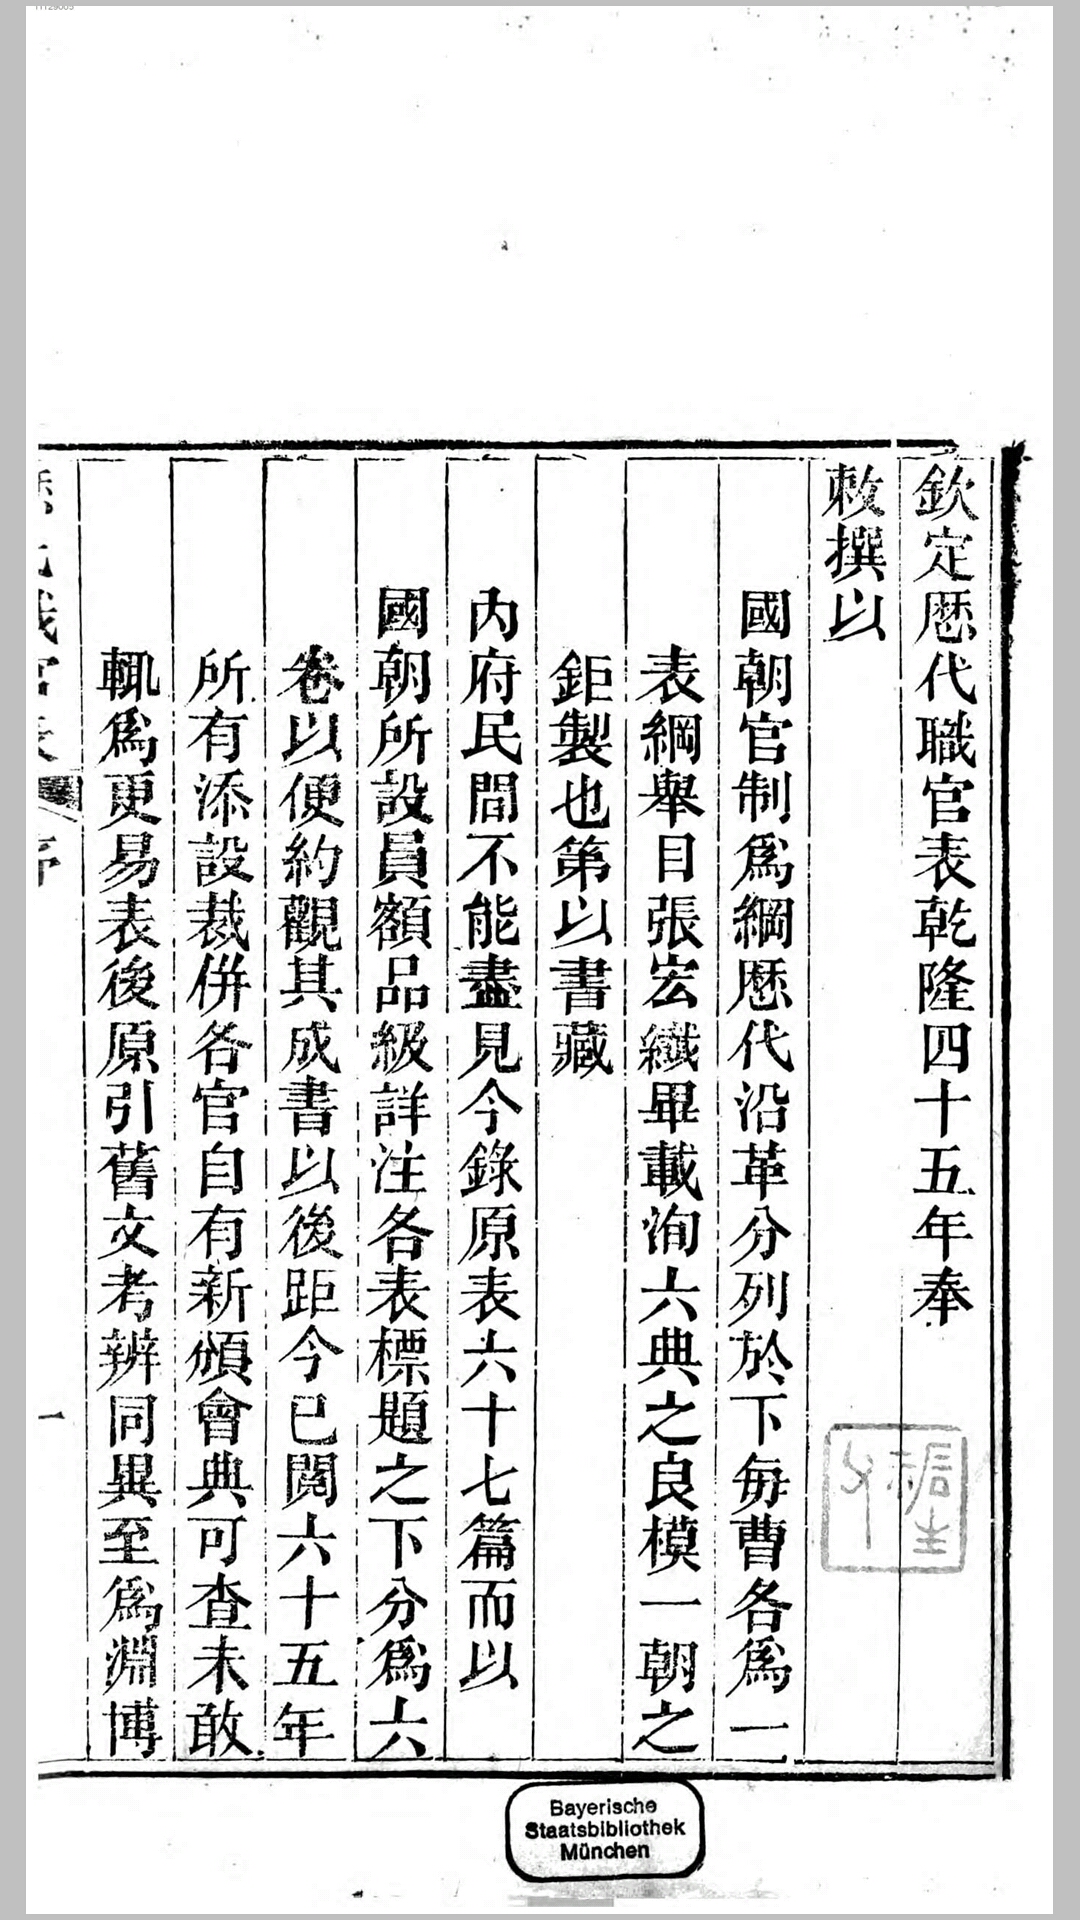 欽定歷代職官表乾隆四十五年奉
敕撰以
國朝官制爲綱歷代沿革分列於下每曹各爲一
表綱舉目張宏纖畢載洵六典之良模一朝之
鉅製也第以書藏
內府民間不能盡見今錄原表六十七篇而以
國朝所設員額品級詳注各表標題之下分爲六
卷以便約觀其成書以後距今已閱六十五年
所有添設裁併各官自有新頒會典可查未敢
輒爲更易表後原引舊文考辨同異至爲淵博
Bayerische
Staatsbibliothek
München